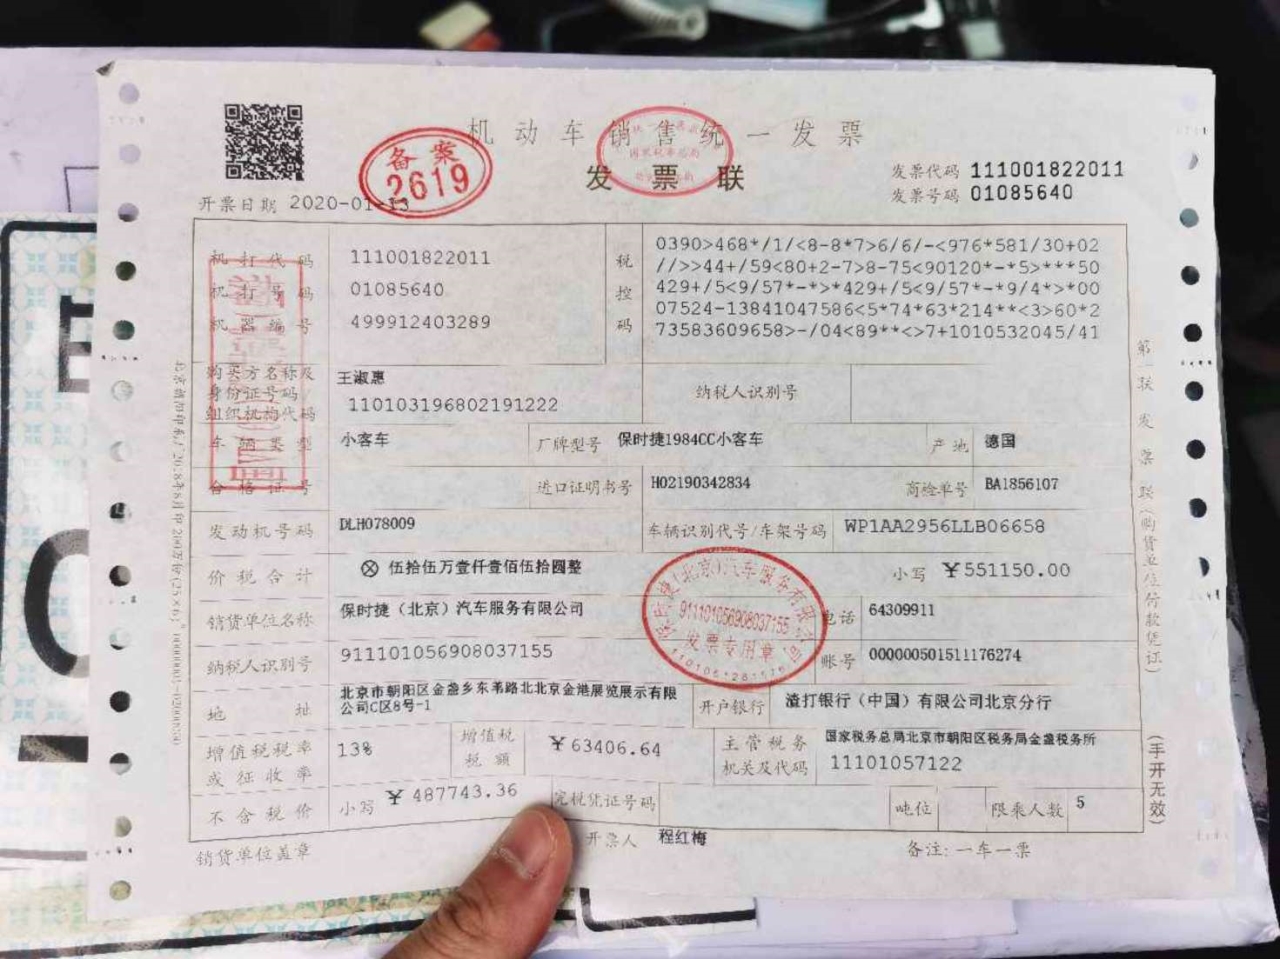 机动车销售统一发票
发票联
备案
2619
发票代码 111001822011
发票号码 01085640
开票日期 2020-01-13
机打代码 111001822011
机打号码 01085640
机器编号 499912403289
税控码
0390>468*/1/<8-8*7>6/6/-<976*581/30+02
//>>44+/59<80+2-7>8-75<90120*-*5>***50
429+/5<9/57*-*>*429+/5<9/57*-*9/4*>*00
07524-13841047586<5*74*63*214**<3>60*2
73583609658>-/04<89**<>7+1010532045/41
购买方名称及
身份证号码/
组织机构代码
王淑惠
110103196802191222
纳税人识别号
车辆类型 小客车 厂牌型号 保时捷1984CC小客车 产地 德国
合格证号 进口证明书号 H02190342834 商检单号 BA1856107
发动机号码 DLH078009 车辆识别代号/车架号码 WP1AA2956LLB06658
价税合计 ⊗ 伍拾伍万壹仟壹佰伍拾圆整 小写 ¥551150.00
销货单位名称 保时捷（北京）汽车服务有限公司 电话 64309911
纳税人识别号 911101056908037155 账号 000000501511176274
地址 北京市朝阳区金盏乡东苇路北北京金港展览展示有限
公司C区8号-1
开户银行 渣打银行（中国）有限公司北京分行
增值税税率
或征收率 13%
增值税
税额 ¥63406.64
主管税务
机关及代码
国家税务总局北京市朝阳区税务局金盏税务所
11101057122
不含税价 小写 ¥487743.36 完税凭证号码 吨位 限乘人数 5
销货单位盖章 开票人 程红梅 备注:一车一票
911101056908037155
发票专用章
第一联 发票联(购货单位付款凭证)
(手开无效)